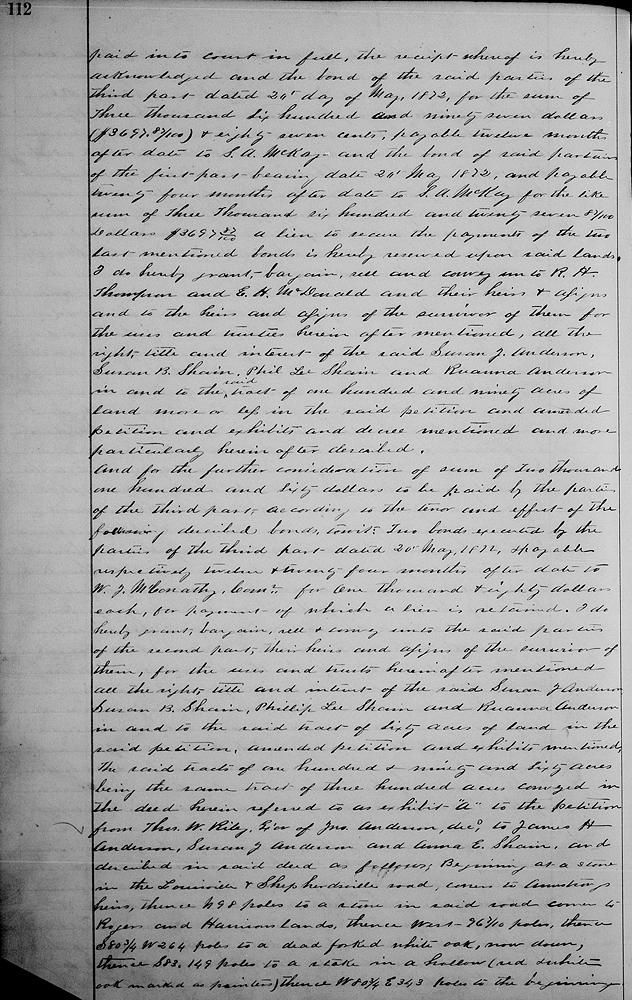 112
paid into court in full, the receipt whereof is hereby
acknowledged and the bond of the said parties of the
third part dated 20" day of May, 1872, for the sum of
Three thousand six hundred and ninety seven dollars
($3697.87/100) & eighty seven cents, payable twelve months
after date to S. A. McKay and the bond of said parties
of the first part bearing date 20" May 1872, and payable
twenty four months after date to S. A. McKay for the like
sum of Three Thousand six hundred and twenty seven 87/100
Dollars $3697 87/100 a lien to secure the payments of the two
last mentioned bonds is hereby reserved upon said lands.
I do hereby grant, bargain, sell and convey unto R. H.
Thompson and E. H. McDonald and their heirs & assigns
and to the heirs and assigns of the survivor of them for
the uses and trusties herein after mentioned, all the
right, title and interest of the said Susan J. Anderson,
Susan B. Shain, Phil Lee Shain and Ruanna Anderson
in and to the said tract of one hundred and ninety acres of
land more or less in the said petition and amended
petition and exhibits and decree mentioned and more
particularly herein after described.
And for the further consideration of sum of Two thousand
one hundred and sixty dollars to be paid by the parties
of the third part, according to the tenor and effect of the
following described bonds, towit: Two bonds executed by the
parties of the third part dated 20" May, 1872, & payable
respectively twelve & twenty four months after date to
W. J. McConathy, Comr. for One thousand & eighty dollars
each, for payment of which a lien is retained. I do
hereby grant, bargain, sell & convey unto the said parties
of the second part, their heirs and assigns of the survivor of
them, for the uses and trusts hereinafter mentioned
all the right, title and interest of the said Susan J Anderson
Susan B. Shain, Phillip Lee Shain and Ruanna Anderson
in and to the said tract of sixty acres of land in the
said petition, amended petition and exhibits mentioned,
The said tracts of one hundred & ninety and sixty acres
being the same tract of three hundred acres conveyed in
the deed herein referred to as exhibit "A" to the petition
from Thos. W. Riley, Exor of Jno. Anderson, decd, to James H
Anderson, Susan J Anderson and Anna E. Shain, and
described in said deed as follows; Beginning at a stone
in the Louisville & Shepherdsville road, corner to Armstrongs
heirs, thence N 98 poles to a stone in said road corner to
Rogers and Harrisons Lands, thence West 96 7/10 poles, thence
S80 3/4 W 264 poles to a dead forked white oak, now down,
thence S83. 149 poles to a stake in a hollow (red & white
oak marked as pointers) thence N 80 3/4 E 343 poles to the beginning